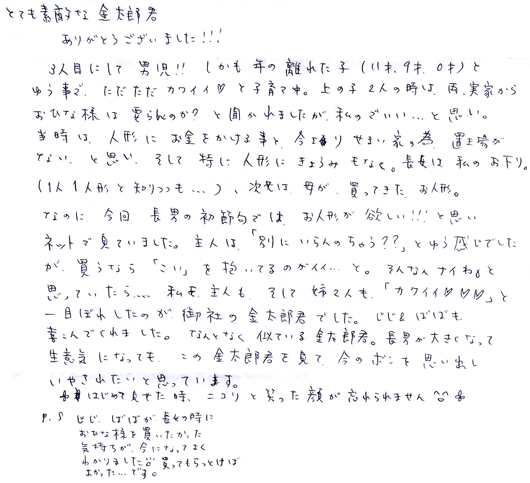 とても素敵な金太郎君
ありがとうございました!!!
3人目にして男児!! しかも年の離れた子(11才、9才、0才)と
ゆう事で、ただただカワイイ♡と子育て中。上の子2人の時は、両実家から
おひな様は要らんのか?と聞かれましたが、私のでいい…と思い。
当時は、人形にお金をかける事と、今よりせまい家の為、置き場が
ない、と思い、そして特に人形にきょうみもなく。長女は私のお下り。
(1人1人形と知りつつも…)、次女は母が買ってきたお人形。
なのに、今回長男の初節句では、お人形が欲しい!!!と思い
ネットで見ていました。主人は、「別にいらんのちゃう??」とゆう感じでした
が、買うなら「こい」を抱いてるのがイイ…と。そんなんナイわぁと
思っていたら…、私も、主人も、そして姉2人も、「カワイイ♡♡♡」と
一目ぼれしたのが御社の金太郎君でした。じじ&ばばも
喜んでくれました。なんとなく似ている金太郎君。長男が大きくなって
生意気になっても、この金太郎君を見て、今のボンを思い出し
いやされたいと思っています。
はじめて見せた時、ニコリと笑った顔が忘れられません
P.S じじ、ばばが長女の時に
おひな様を買いたかった
気持ちが、今になってよく
わかりました 買ってもらっとけば
よかった…です。